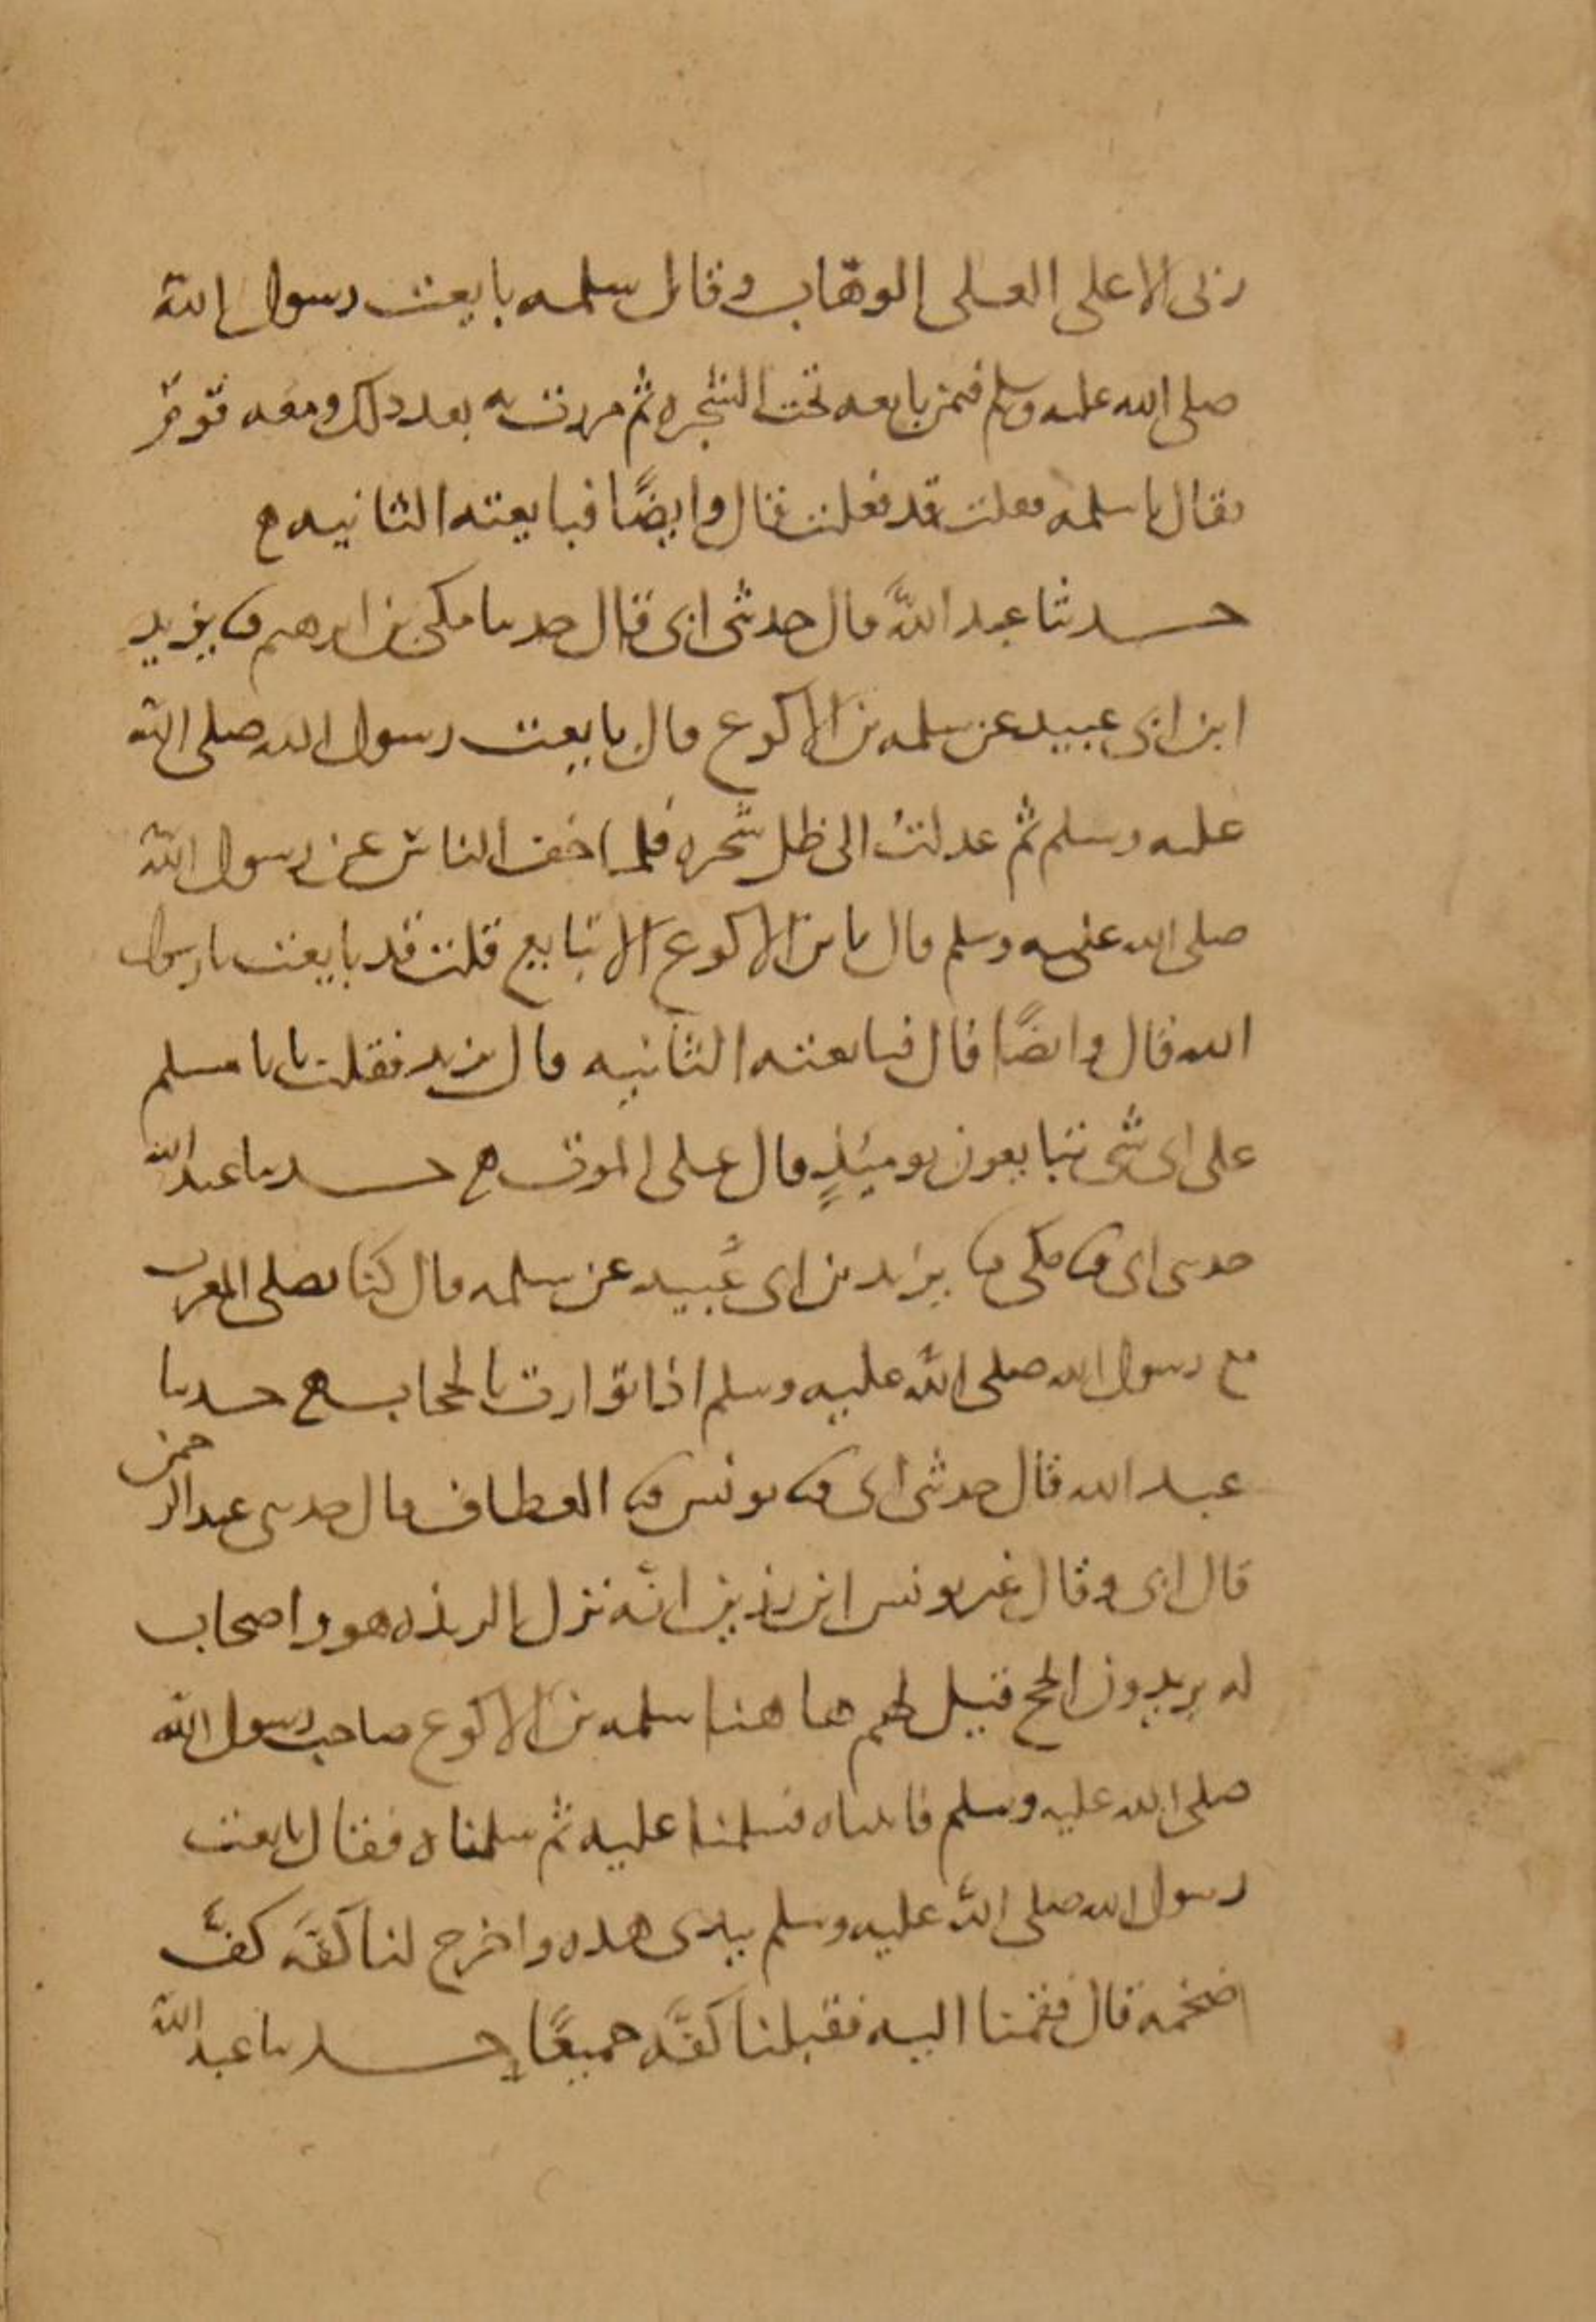 ربى الاعلى العلى الوهاب وقال سلمه بايعت رسول الله
صلى الله عليه وسلم فيمن بايعه تحت الشجره ثم مررت به بعد ذلك ومعه قوم
فقال يا سلمه فعلت قد فعلت قال وايضًا فبايعته الثانيه ه
حدثنا عبد الله قال حدثنى ابى قال حدثنا مكى بن ابرهيم ثنا يزيد
ابن ابى عبيد عن سلمه بن الاكوع قال بايعت رسول الله صلى الله
عليه وسلم ثم عدلتُ الى ظل شجره فلما خف الناس عن رسول الله
صلى الله عليه وسلم قال يا بن الاكوع الا تبايع قلت قد بايعت يا رسول
الله قال وايضًا قال فبايعته الثانيه قال يزيد فقلت يا با مسلم
على اى شى تبايعون يوميئذٍ قال على الموت ه حدثنا عبد الله
حدثنى ابى ثنا مكى ثنا يزيد بن ابى عُبيد عن سلمه قال كنا نصلى المغرب
مع رسول الله صلى الله عليه وسلم اذا توارت بالحجاب ه حدثنا
عبد الله قال حدثنى ابى ثنا يونس ثنا العطاف قال حدثنى عبد الرحمن
قال ابى وقال غير يونس ابن رزين انه نزل الربذه هو واصحاب
له يريدون الحج قيل لهم هاهنا سلمه بن الاكوع صاحب رسول الله
صلى الله عليه وسلم فاتيناه فسلمنا عليه ثم سلمناه فقال بايعت
رسول الله صلى الله عليه وسلم بيدى هذه واخرج لنا كفه كفًّا
ضخمه قال فقمنا اليه فقبلنا كفَّه جميعًا حدثنا عبد الله